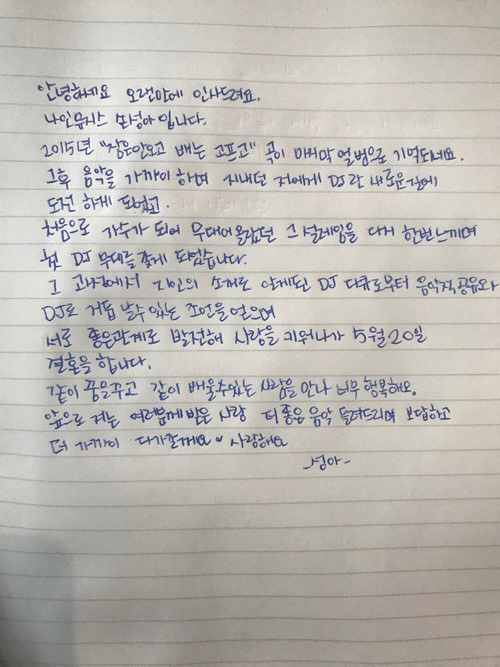 안녕하세요 오랜만에 인사드려요.
나인뮤지스 손성아 입니다.
2015년 "잠은안오고 배는 고프고" 곡이 마지막 앨범으로 기억되네요.
그후 음악을 가까이 하며 지내던 저에게 DJ란 새로운길에
도전 하게 되었고.
처음으로 가수가 되어 무대에 올랐던 그 설레임을 다시 한번 느끼며
첫 DJ 무대를 갖게 되었습니다.
그 과정에서 지인의 소개로 알게된 DJ 다큐로부터 음악적공유와
DJ로 거듭 날수 있는 조언을 얻으며
서로 좋은관계로 발전해 사랑을 키워나가 5월20일
결혼을 합니다.
같이 꿈을꾸고 같이 배울수있는 사람을 만나 너무 행복해요.
앞으로 저는 여러분께 받은 사랑 더 좋은 음악 들려드리며 보답하고
더 가까이 다가갈께요 사랑해요
-성아-